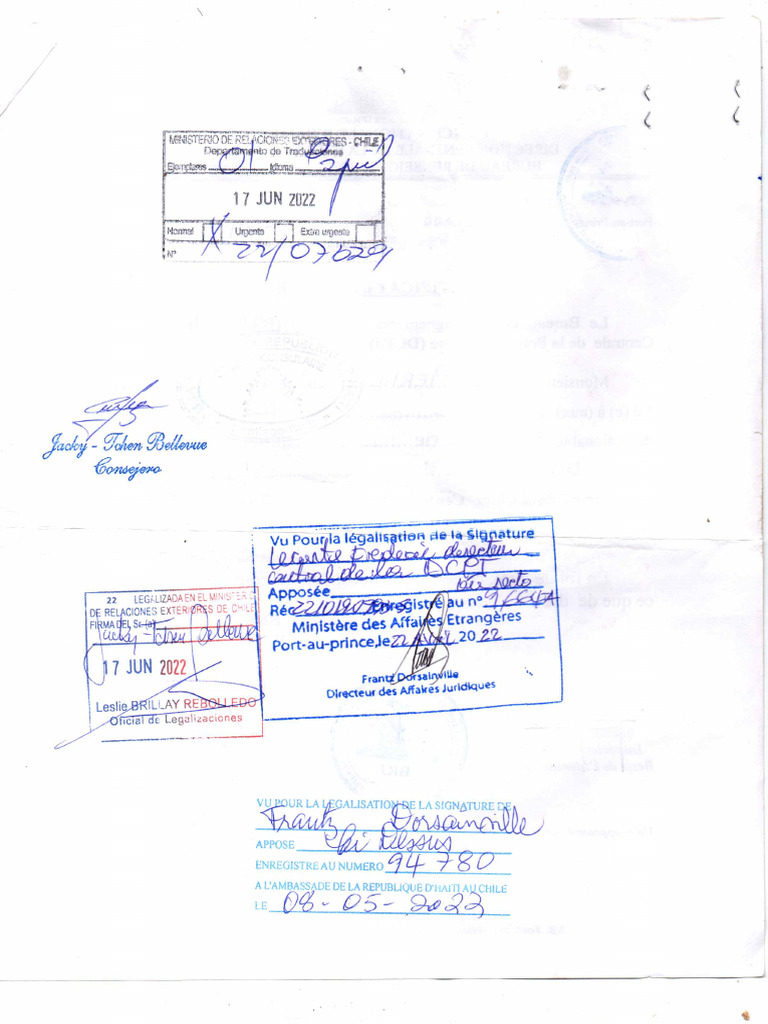 MINISTERIO DE RELACIONES EXTERIORES - CHILE
Departamento de Traducciones
Ejemplares 01 Idioma
17 JUN 2022
Normal X Urgente Extra urgente
N° 22/07029
Jacky - Tchen Bellevue
Consejero
Vu Pour la légalisation de la Signature
directeur
central de la DCPJ
Apposée au recto
Réc Enregistré au n°
Ministère des Affaires Etrangères
Port-au-prince, le 22 2022
Frantz Dorsainville
Directeur des Affaires Juridiques
22 LEGALIZADA EN EL MINISTERIO
DE RELACIONES EXTERIORES DE CHILE
FIRMA DEL Sr. (a)
Jacky-Tchen Bellevue
17 JUN 2022
Leslie BRILLAY REBOLLEDO
Oficial de Legalizaciones
VU POUR LA LEGALISATION DE LA SIGNATURE DE
Frantz Dorsainville
APPOSE Ci Dessus
ENREGISTRE AU NUMERO 94780
A L'AMBASSADE DE LA REPUBLIQUE D'HAITI AU CHILE
LE 08-05-2022